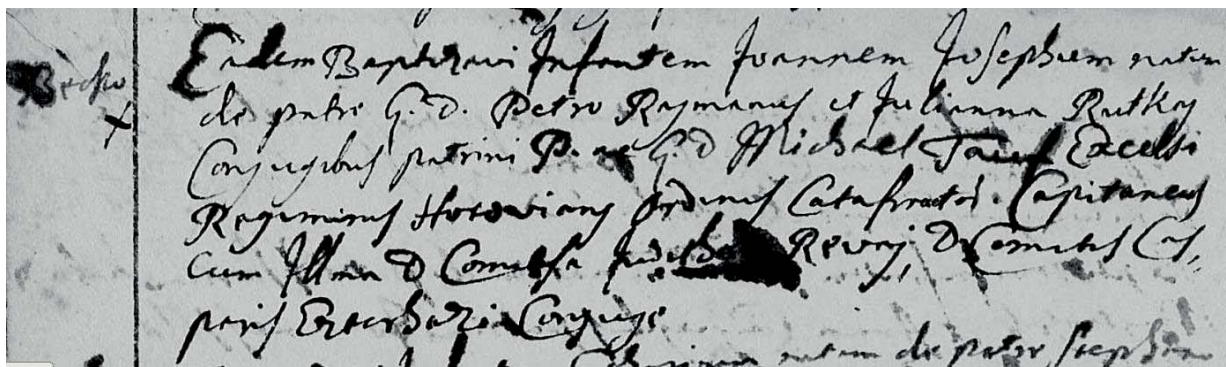 Becko
Eadem Baptizavi Infantem Joannem Josephum natum
de patre G. D. Petro Raymanus et Julianna Rutkay
Conjugibus patrini P. ac G. D Michael Excelsi
Regiminis Ordinis Catafractor. Capitaneus
cum Illma D Comitissa Revaj, D. Comitis Cas,
paris Conjuge
natum de patre Stephano